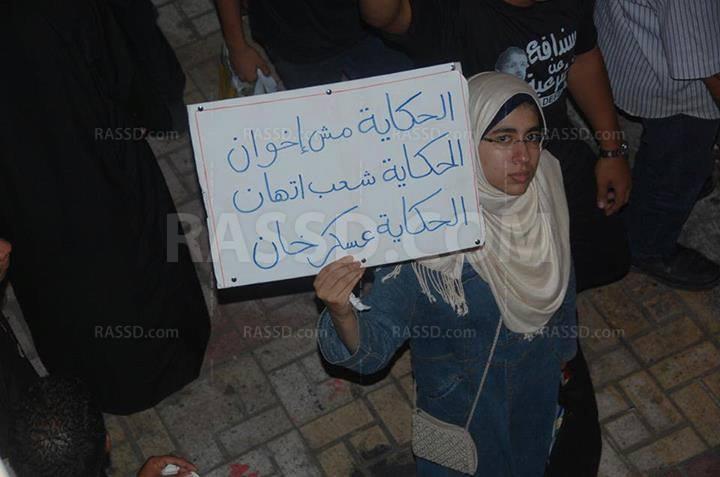 سندافع
عن
شرعية
الحكاية مش إخوان
الحكاية شعب اتهان
الحكاية عسكر خان
RASSD.COM
RASSD.com
RASSD.com
RASSD.com
RASSD.com
RASSD.com
RASSD.com
RASSD.com
RASSD.com